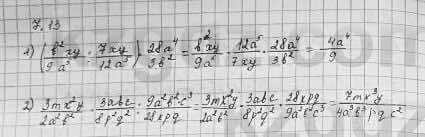 7.13
1) (b²xy/9a⁵ : 7xy/12a⁵) · 28a⁴/3b² = b²xy/9a⁵ · 12a⁵/7xy · 28a⁴/3b² = 4a⁴/9
2) 3mx²y/2a²b² · 3abc/8p²q² : 9a²b²c³/28xpq = 3mx²y/2a²b² · 3abc/8p²q² · 28xpq/9a²b²c³ = 7mx³y/4a³b³pqc²